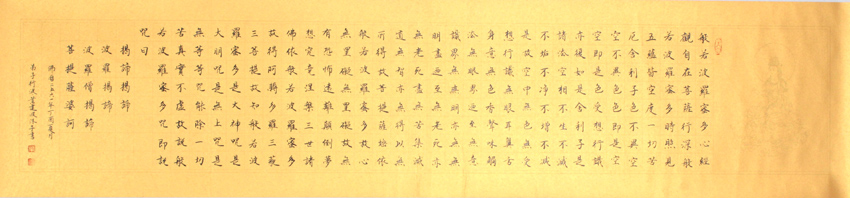 般若波羅蜜多心經
觀自在菩薩行深般
若波羅蜜多時照見
五蘊皆空度一切苦
厄舍利子色不異空
空不異色色即是空
空即是色受想行識
亦復如是舍利子是
諸法空相不生不滅
不垢不淨不增不減
是故空中無色無受
想行識無眼耳鼻舌
身意無色香聲味觸
法無眼界乃至無意
識界無無明亦無無
明盡乃至無老死亦
無老死盡無苦集滅
道無智亦無得以無
所得故菩提薩埵依
般若波羅蜜多故心
無罣礙無罣礙故無
有恐怖遠離顛倒夢
想究竟涅槃三世諸
佛依般若波羅蜜多
故得阿耨多羅三藐
三菩提故知般若波
羅蜜多是大神咒是
大明咒是無上咒是
無等等咒能除一切
苦真實不虛故說般
若波羅蜜多咒即說
咒曰
揭諦揭諦
波羅揭諦
波羅僧揭諦
菩提薩婆訶
佛曆二五六一年丁酉
弟子